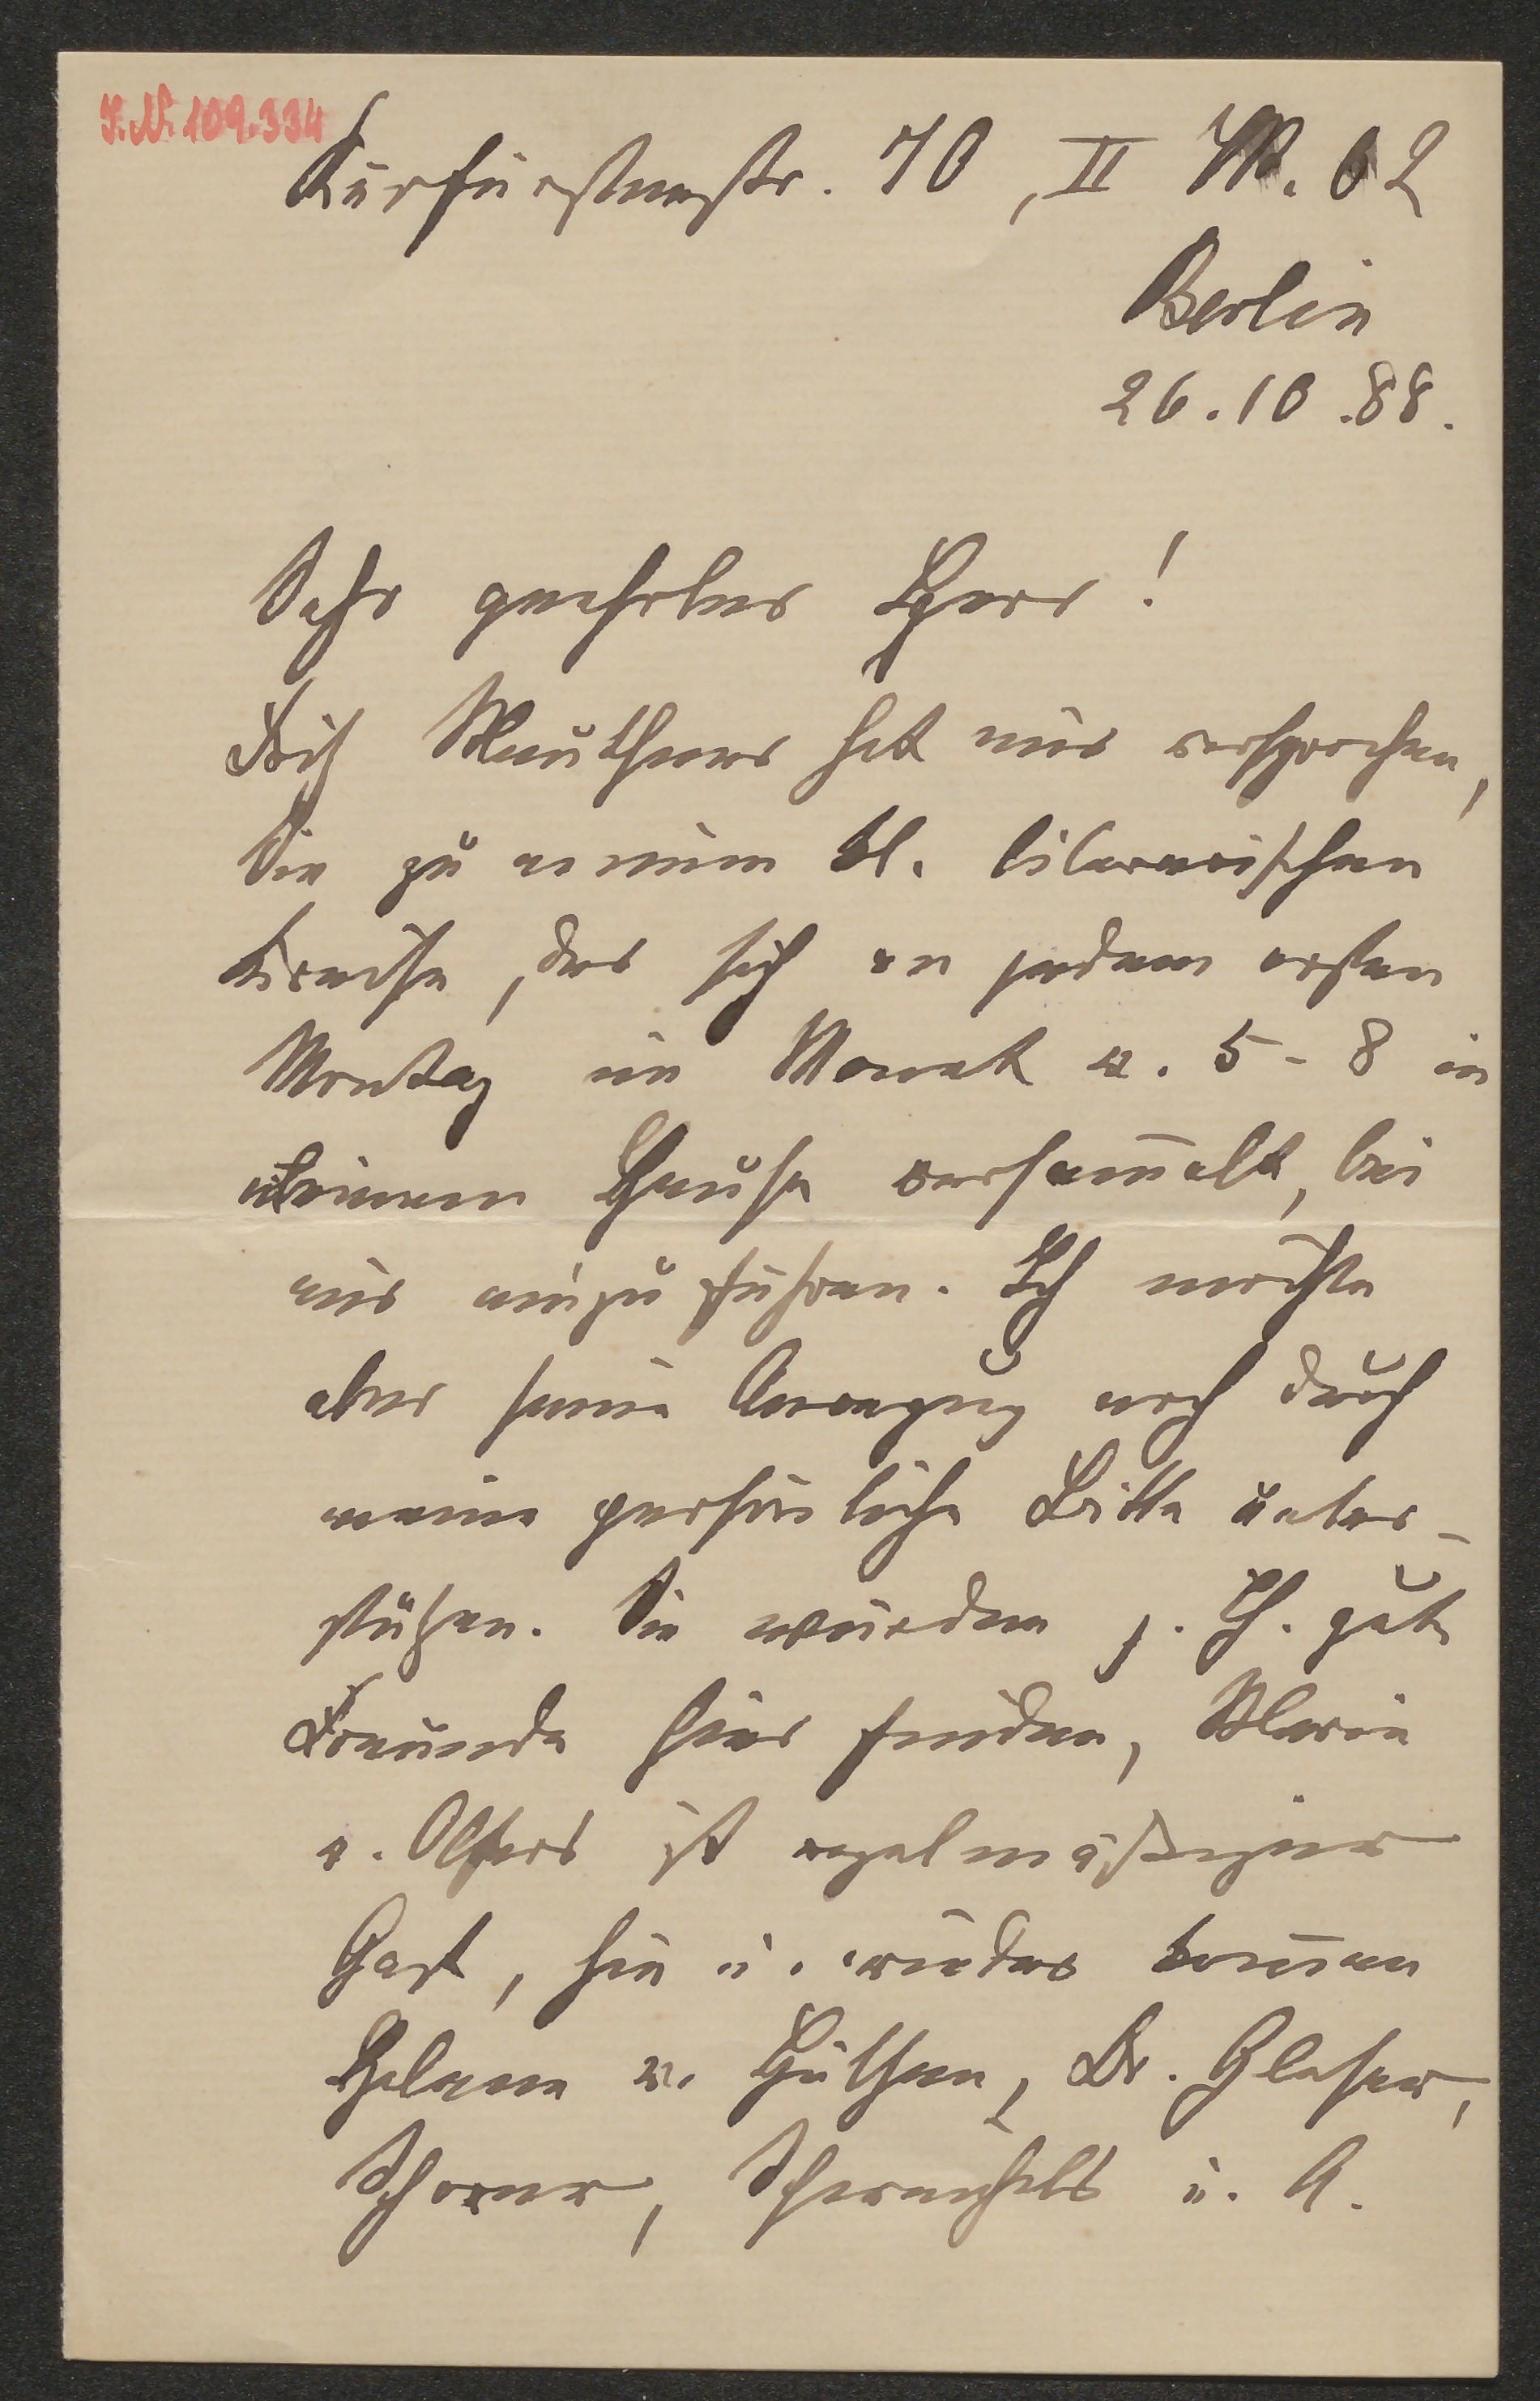 I.N. 109.334
Kurfürstenstr. 70, II W. 62
Berlin
26.10.88.
Sehr geehrter Herr!
Fritz Mauthner hat mir versprochen,
Sie zu meinem kl. literarischen
Kreise, der sich an jedem ersten
Montag im Monat v. 5-8 in
meinem Hause versam̅elt, bei
mir einzuführen. Ich möchte
aber seine Anregung noch durch
meine persönliche Bitte unter-
stützen. Sie würden z. Th. gute
Freunde hier finden, Marie
v. Olfers ist regelmäßiger
Gast, hin u. wieder kom̅en
Helene v. Hülsen, Dr. Glaser,
Schorer, u. A.